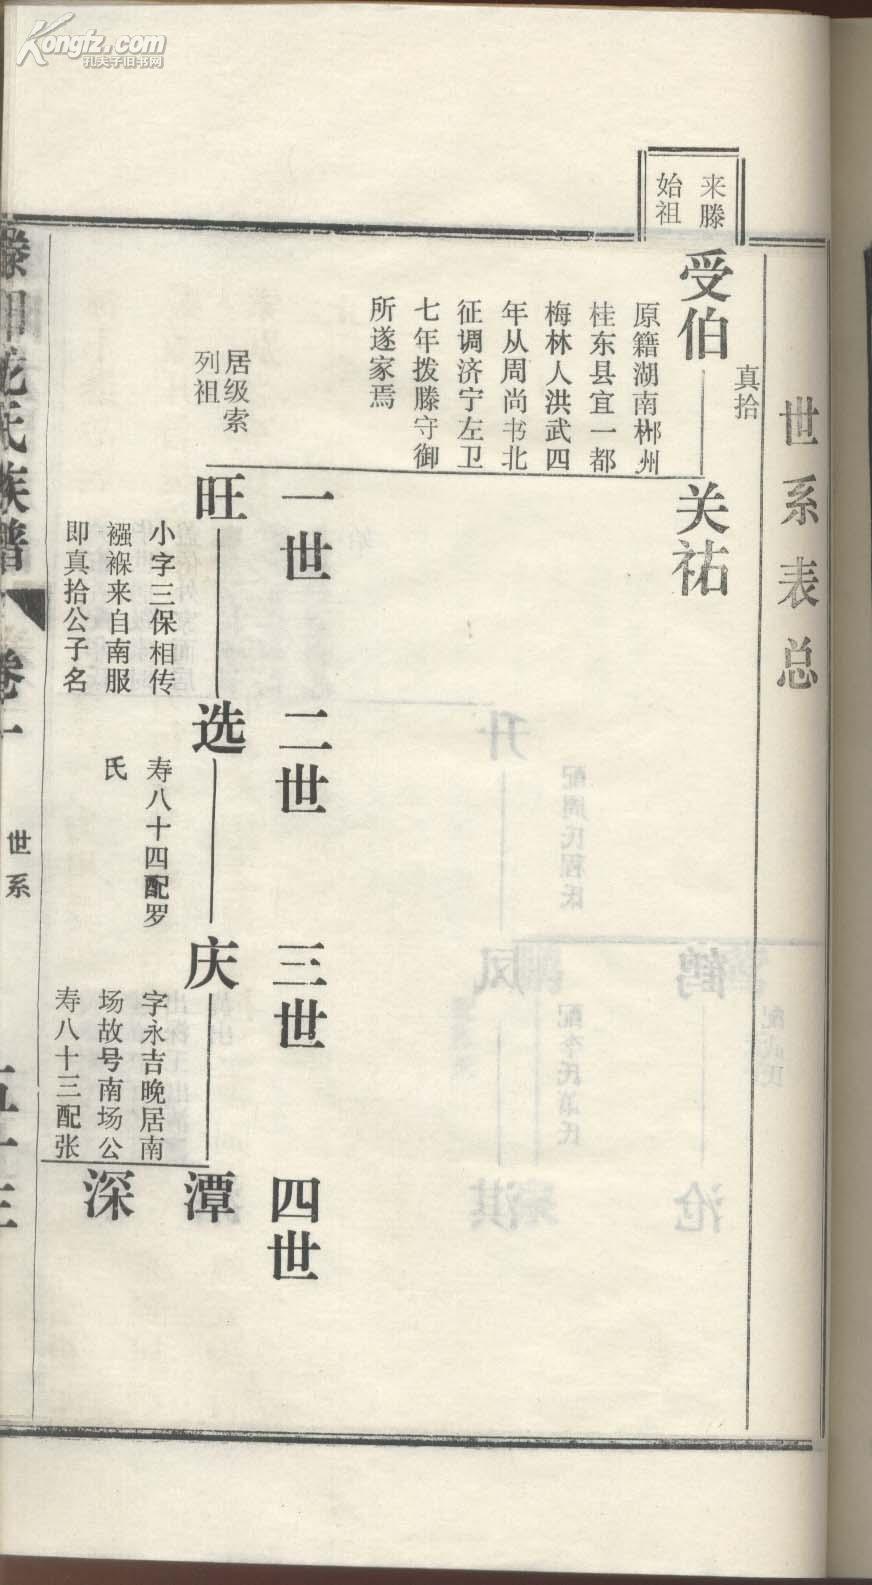 Kongfz.com
孔夫子旧书网
世系表总
来滕
始祖
真拾
受伯
关祐
原籍湖南郴州
桂东县宜一都
梅林人洪武四
年从周尚书北
征调济宁左卫
七年拨滕守御
所遂家焉
一世
二世
三世
四世
居级索
列祖
旺
小字三保相传
襁褓来自南服
即真拾公子名
选
寿八十四配罗
氏
庆
字永吉晚居南
场故号南场公
寿八十三配张
潭
深
氏族谱
卷一
世系